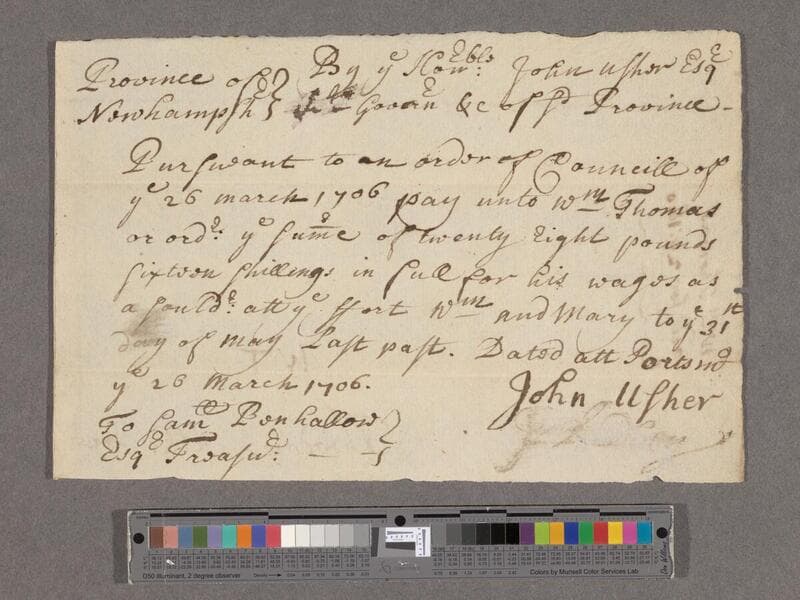 Province of } By yᵉ Honᵇˡᵉ: John Usher Esqᵉ
Newhampsh } Lᵗ Governʳ &c of sᵈ Province -
Pursuant to an order of Councill of
yᵉ 26 march 1706 pay unto Wᵐ Thomas
or ordʳ: yᵉ Summe of twenty Eight pounds
sixteen shillings in full for his wages as
a souldʳ: att yᵉ ffort Wᵐ and Mary to yᵉ 31ˢᵗ
day of may Last past. Dated att Portsmᵒ
yᵉ 26 March 1706.
John Usher
To Samˡˡ Penhallow }
Esqʳ Treasuʳ: — — }
D50 Illuminant, 2 degree observer
Density
Colors by Munsell Color Services Lab